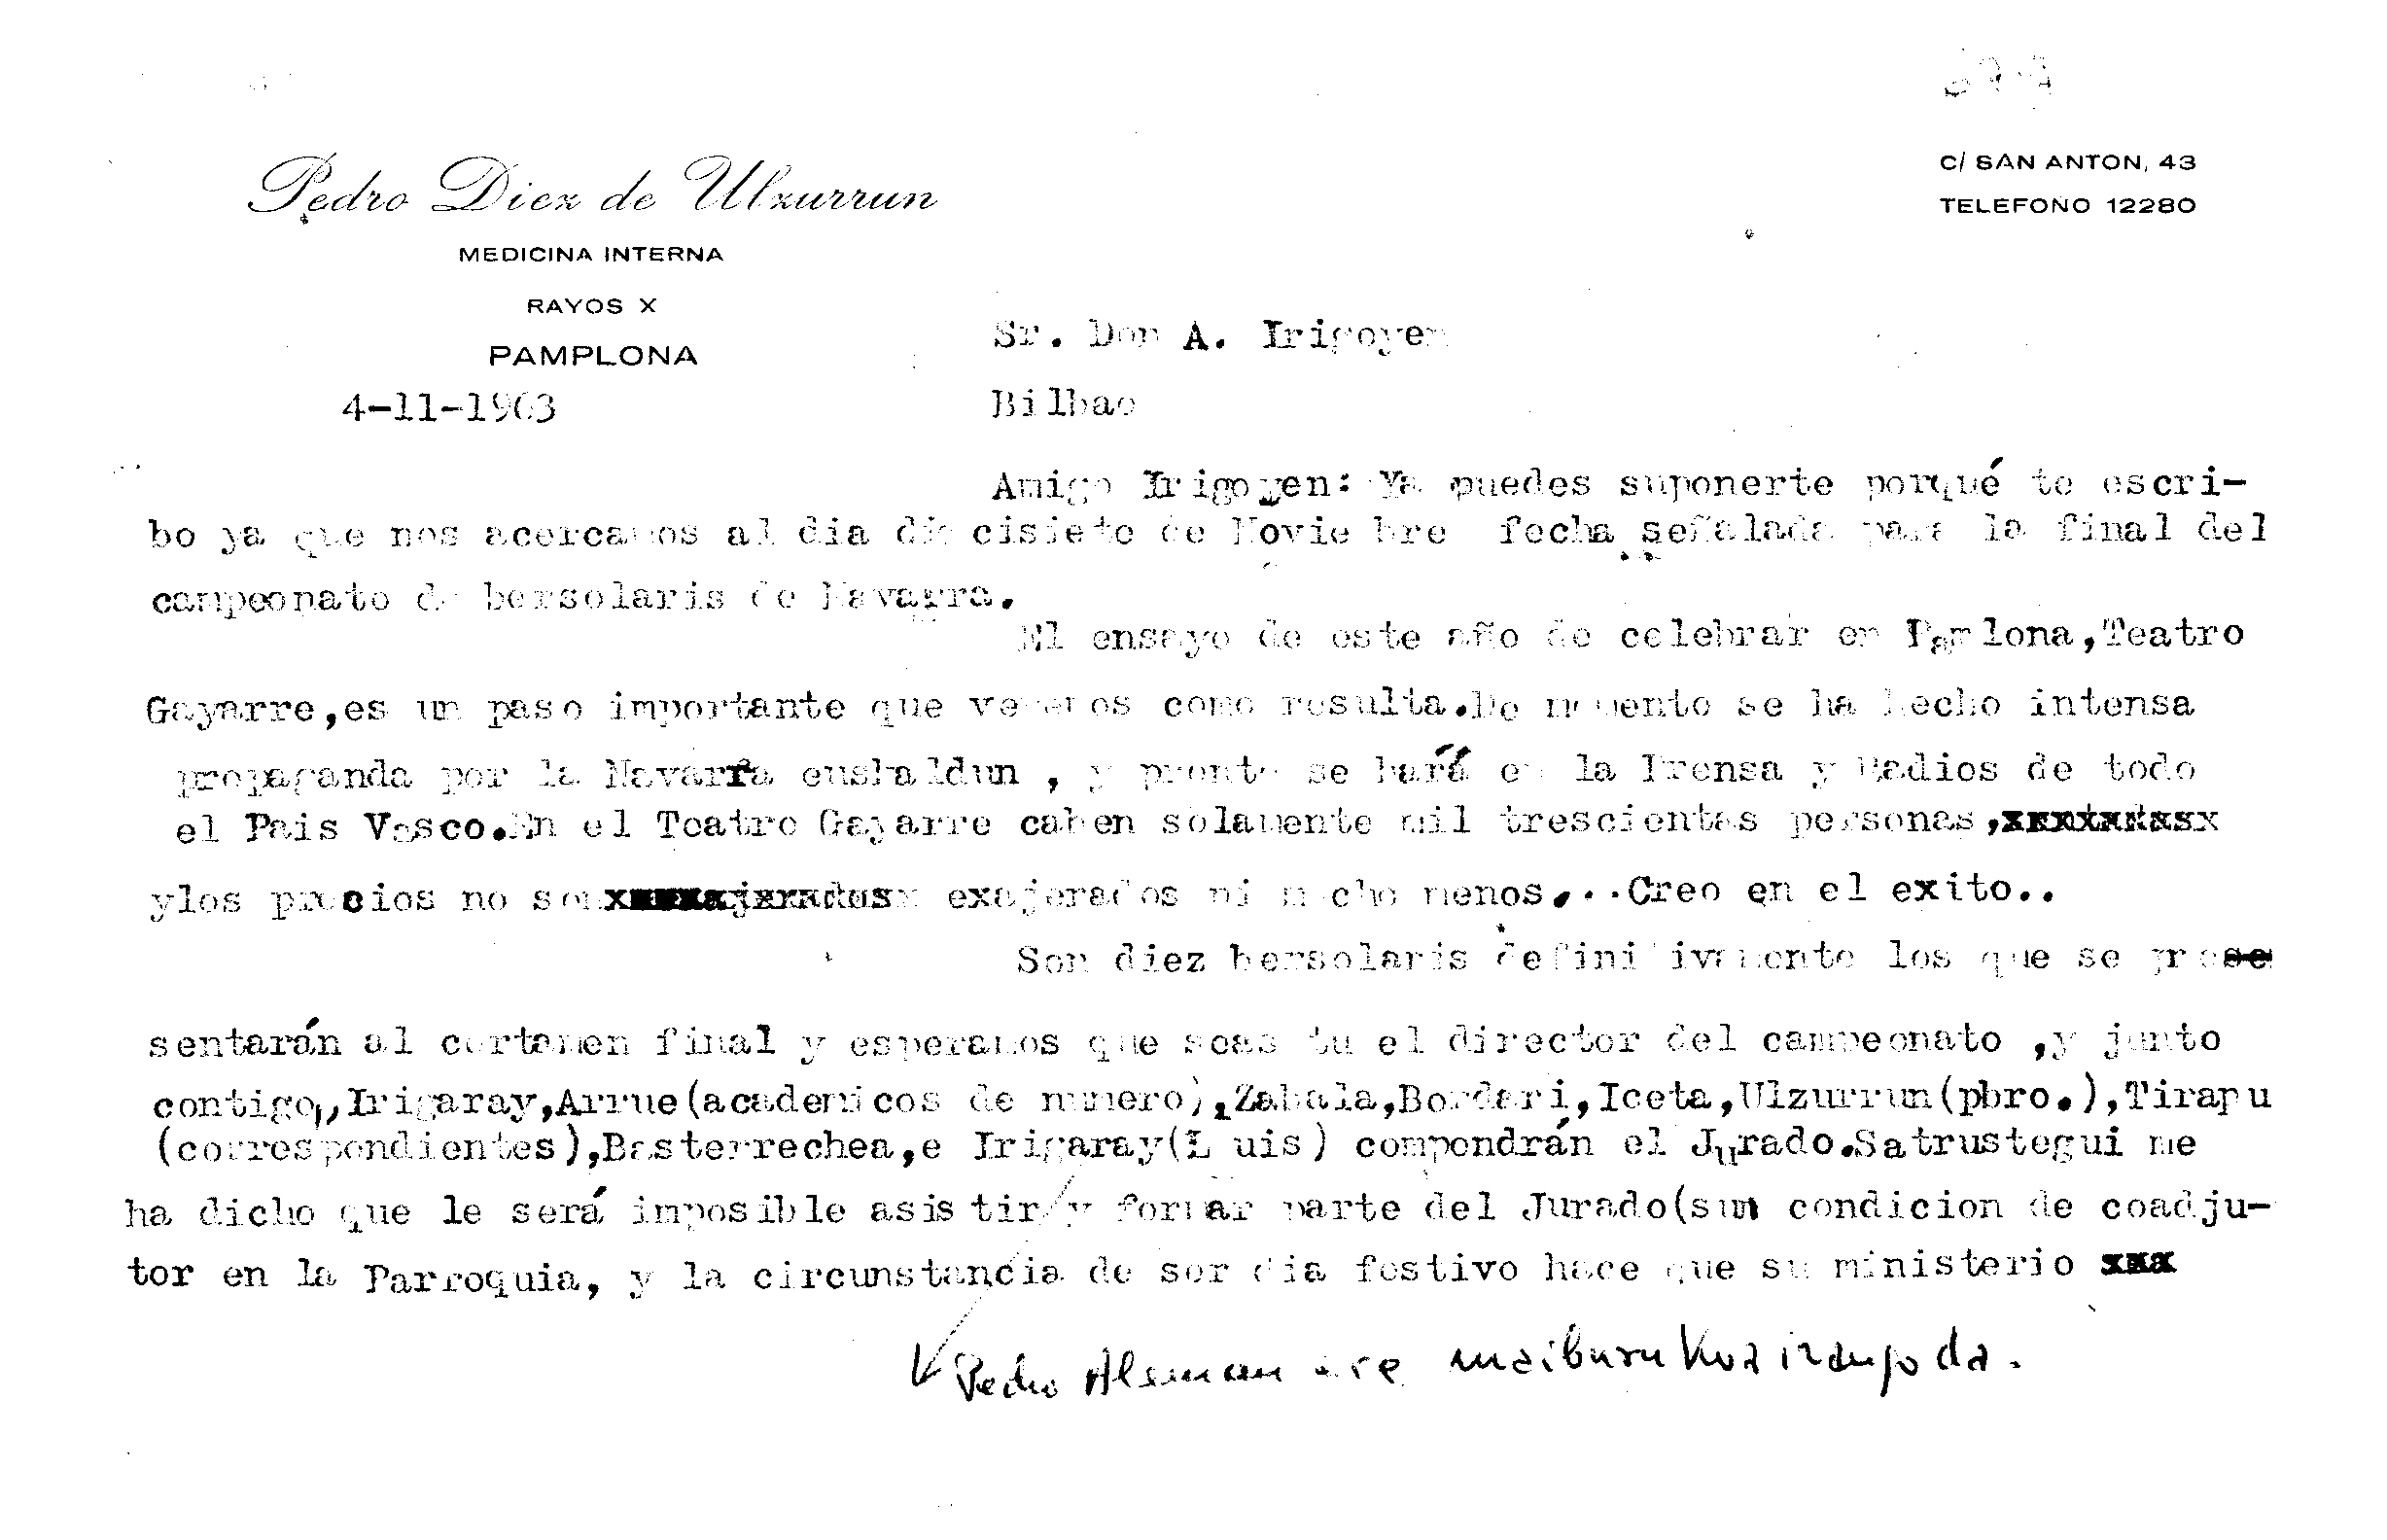 Pedro Diez de Ulzurrun
MEDICINA INTERNA
RAYOS X
PAMPLONA
C/ SAN ANTON, 43
TELEFONO 12280
4-11-1963
Sr. Don A. Irigoyen
Bilbao
Amigo Irigoyen: Ya puedes suponerte porqué te escri-
bo ya que nos acercamos al dia diecisiete de Noviembre fecha señalada para la final del
campeonato de bersolaris de Navarra.
El ensayo de este año de celebrar en Pamplona,Teatro
Gayarre,es un paso importante que veremos como resulta.De momento se ha hecho intensa
propaganda por la Navarra euskaldun , y pronto se hará en la Prensa y Radios de todo
el Pais Vasco.En el Teatro Gayarre caben solamente mil trescientas personas,
ylos precios no son exajerados ni mucho menos...Creo en el exito..
Son diez bersolaris definitivamente los que se prese
sentarán al certamen final y esperamos que seas tu el director del campeonato ,y junto
contigo,Irigaray,Arrue(academicos de numero),Zabala,Bordari,Iceta,Ulzurrun(pbro.),Tirapu
(correspondientes),Basterrechea,e Irigaray(L uis) compondrán el Jurado.Satrustegui me
ha dicho que le será imposible asistir/y formar parte del Jurado(sun condicion de coadju-
tor en la Parroquia, y la circunstancia de ser dia festivo hace que su ministerio xxx
Pedro Aleman ere maiburukoa izango da.